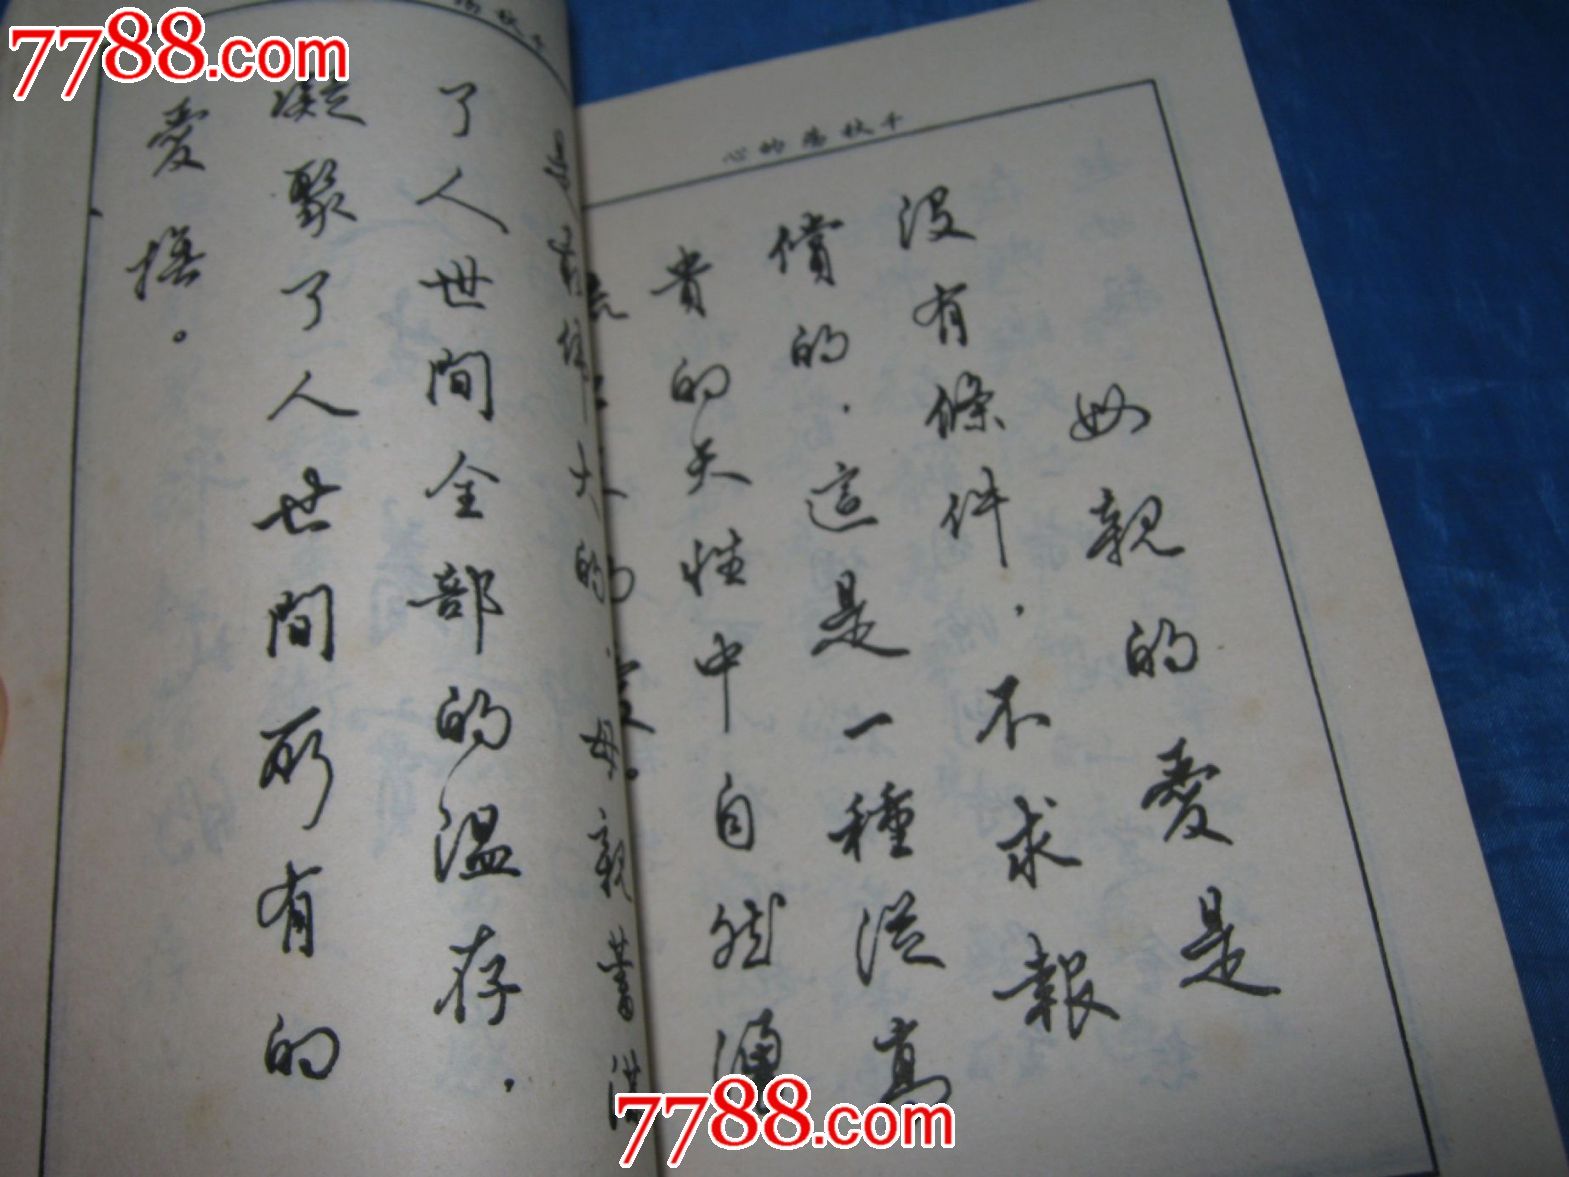 7788.com
心的蕩秋千
母親的愛是
沒有條件，不求報
償的，這是一種從真
貴的天性中自然
愛。
秋千
是最偉大的，母親薈
了人世間全部的溫存，
凝聚了人世間所有的
愛撫。
7788.com